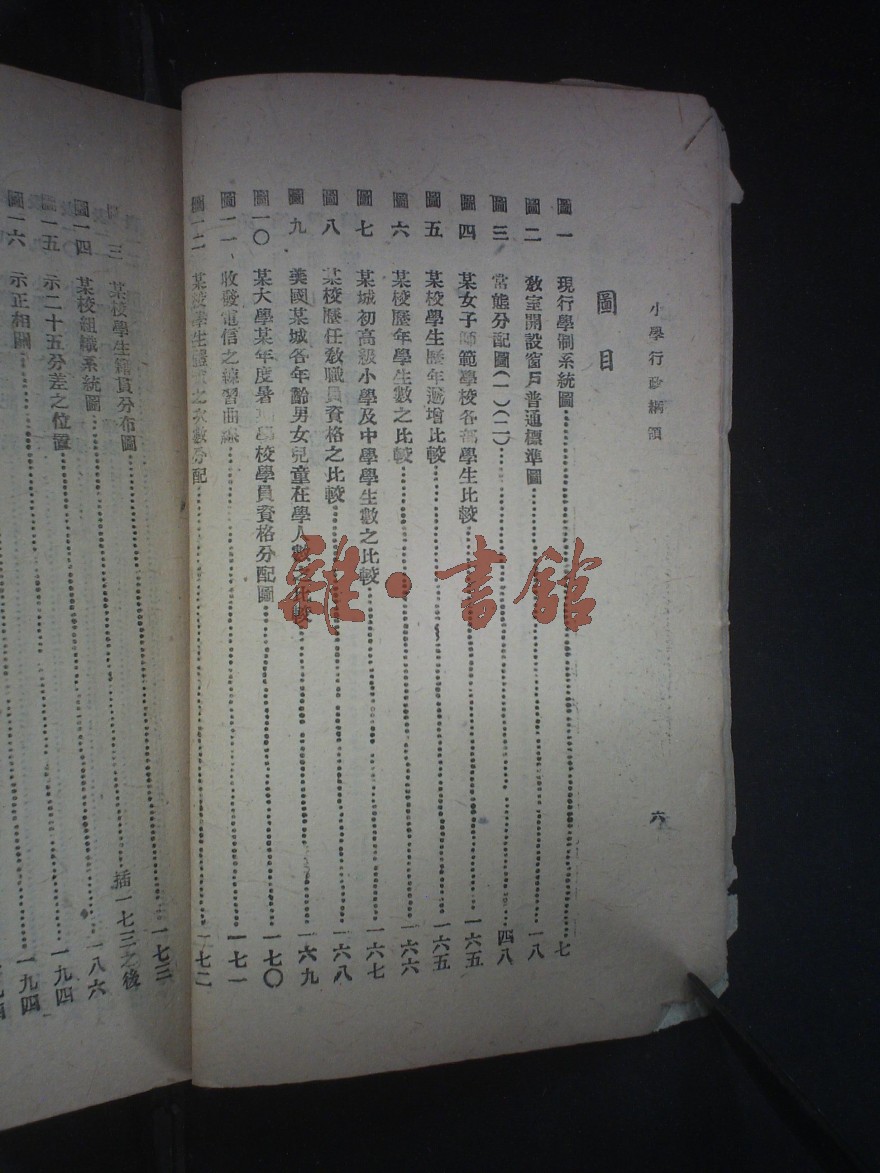 小學行政綱領
六
圖目
圖一 現行學制系統圖……七
圖二 教室開設窗戶普通標準圖……一八
圖三 常態分配圖(一)(二)……四八
圖四 某女子師範學校各部學生比較……一六五
圖五 某校學生歷年遞增比較……一六五
圖六 某校歷年學生數之比較……一六六
圖七 某城初高級小學及中學學生數之比較……一六七
圖八 某校歷任教職員資格之比較……一六八
圖九 美國某城各年齡男女兒童在學人數之比較……一六九
圖一〇 某大學某年度暑 學校學員資格分配圖……一七〇
圖一一 收發電信之練習曲線……一七一
圖一二 某校學生體重之次數分配……一七二
一七三
圖 三 某校學生籍貫分布圖……插一七三之後
圖一四 某校組織系統圖……一八六
圖一五 示二十五分差之位置……一九四
圖一六 示正相關……一九四
雜·書館